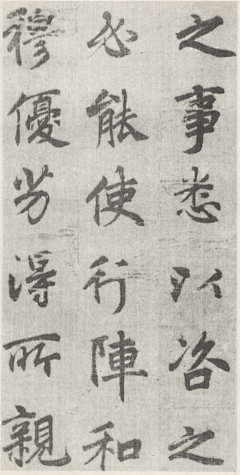 之事悉以咨之
必能使行陣和
穆優劣得所親